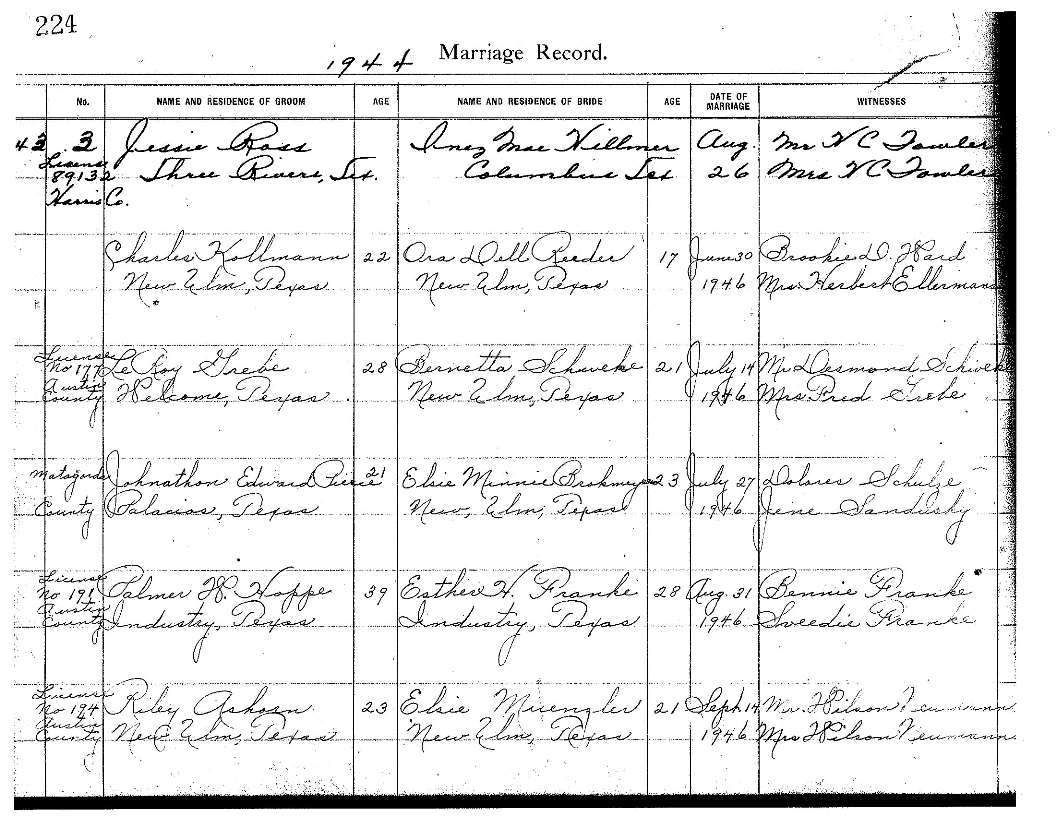 224
1944 Marriage Record.
No. NAME AND RESIDENCE OF GROOM AGE NAME AND RESIDENCE OF BRIDE AGE DATE OF MARRIAGE WITNESSES
43 3 Jessie Ross Inez Mae Hillmer Aug. Mr V C Fowler
License 89132 Three Rivers, Tex. Columbus Tex 26 Mrs V C Fowler
Harris Co.
Charles Kollmann 22 Ora Dell Reeder 17 June 30 Brookie D. Ward
New Elm, Texas New Elm, Texas 1946 Mrs Herbert Ellermann
License No 177 Le Roy Grebe 28 Bernetta Schweke 21 July 14 Mr Desmond Schweke
Austin County Welcome, Texas New Elm, Texas 1946 Mrs Fred Grebe
Matagorda Johnathon Edward Pierce 21 Elsie Minnie Brokmeyer 23 July 27 Dolores Schulze
County Palacios, Texas New, Elm, Texas 1946 Jene Sandusky
License No 191 Palmer W. Hoppe 39 Esther H. Franke 28 Aug. 31 Bennie Franke
Austin County Industry, Texas Industry, Texas 1946 Sveedie Franke
License No 194 Riley Ashorn 23 Elsie Muenzler 21 Sept 14 Mr. Wilson Neumann
Austin County New Elm, Texas New Elm, Texas 1946 Mrs Wilson Neumann